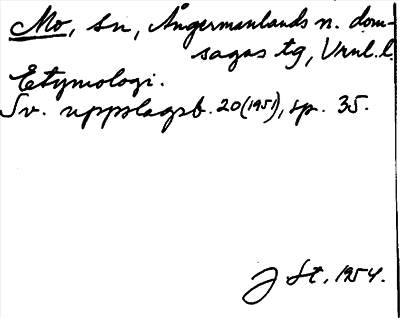 Mo, sn, Ångermanlands n. dom-
sagas tg, Vrnl. l.
Etymologi.
Sv. uppslagsb. 20 (1951), sp. 35.
J St. 1954.